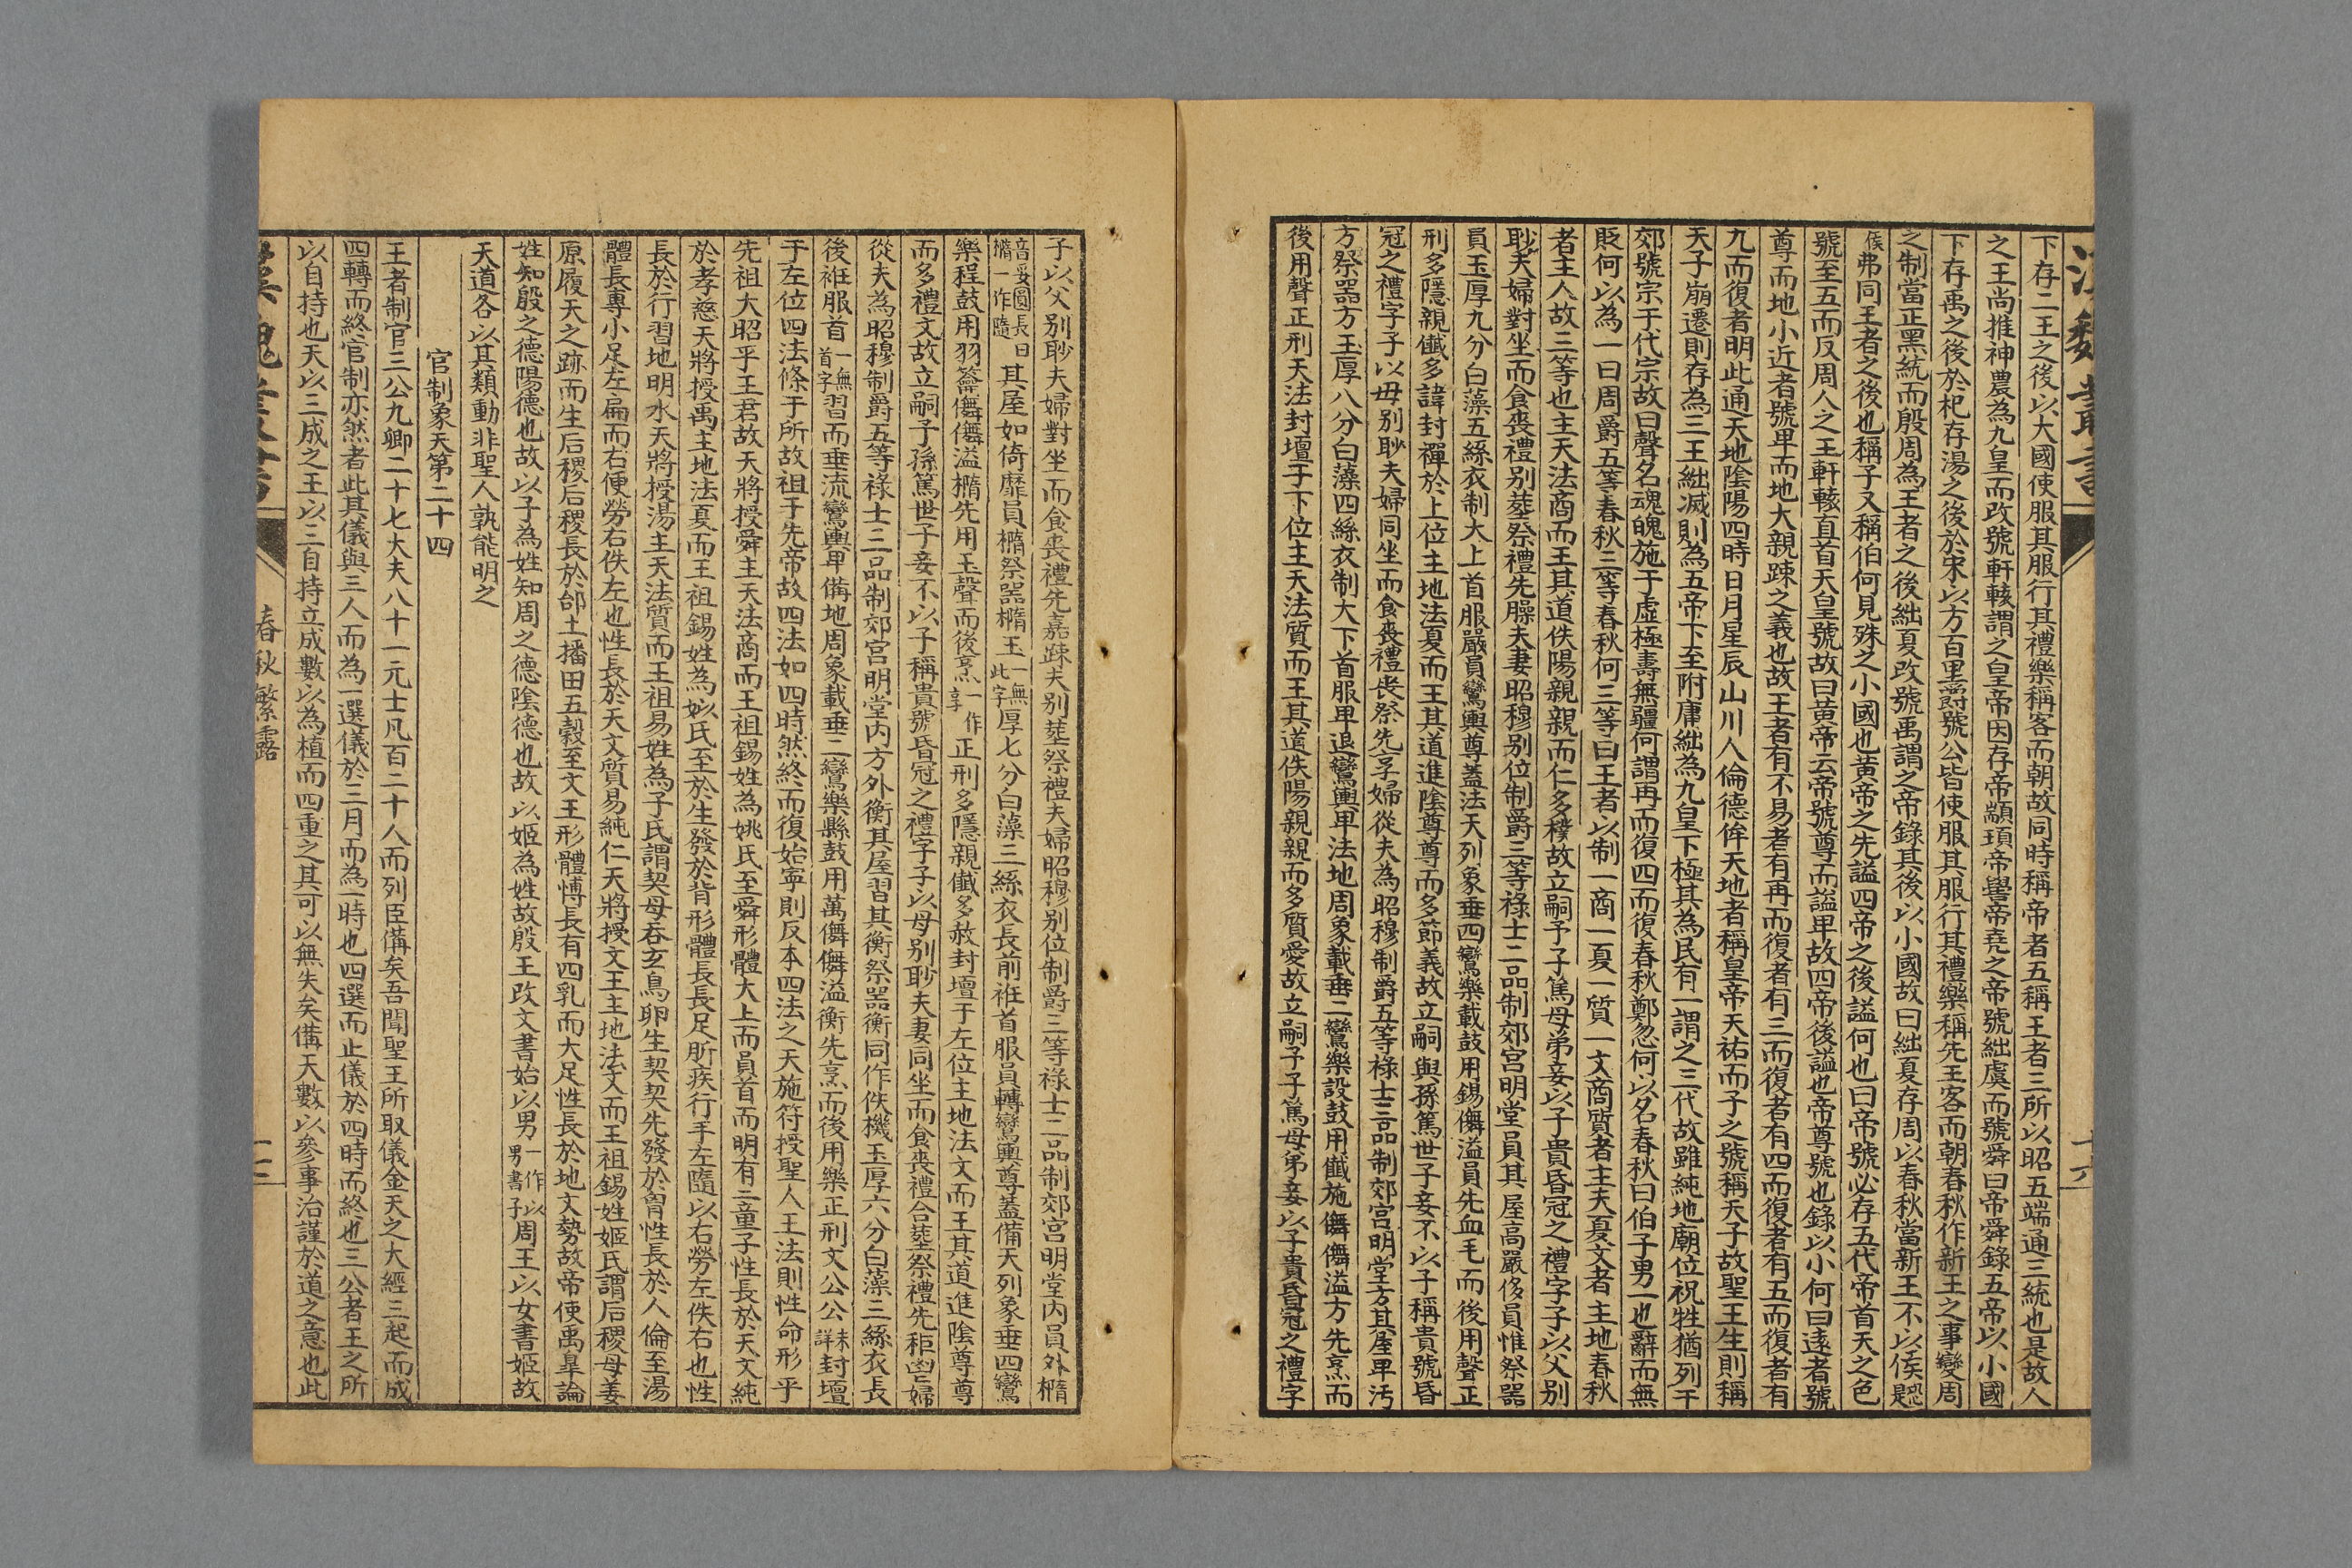 下存二王之後以大國使服其服行其禮樂稱客而朝故同時稱帝者五稱王者三所以昭五端通三統也是故人
之王尚推神農為九皇而改號軒轅謂之皇帝因存帝顓頊帝嚳帝堯之帝號絀虞而號舜曰帝舜錄五帝以小國
下存禹之後於杞存湯之後於宋以方百里爵號公皆使服其服行其禮樂稱先王客而朝春秋作新王之事變周
之制當正黑統而殷周為王者之後絀夏改號禹謂之帝錄其後以小國故曰絀夏存周以春秋當新王不以侯恐是
侯弗同王者之後也稱子又稱伯何見殊之小國也黃帝之先謚四帝之後謚何也曰帝號必存五代帝首天之色
號至五而反周人之王軒轅直首天皇號故曰黃帝云帝號尊而謚卑故四帝後謚也帝尊號也錄以小何曰遠者號
尊而地小近者號卑而地大親踈之義也故王者有不易者有再而復者有三而復者有四而復者有五而復者有
九而復者明此通天地陰陽四時日月星辰山川人倫德侔天地者稱皇帝天祐而子之號稱天子故聖王生則稱
天子崩遷則存為三王絀滅則為五帝下至附庸絀為九皇下極其為民有一謂之三代故雖純地廟位祝牲猶列于
郊號宗于代宗故曰聲名魂魄施于虛極壽無疆何謂再而復四而復春秋鄭忽何以名春秋曰伯子男一也辭而無
貶何以為一曰周爵五等春秋三等春秋何三等曰王者以制一商一夏一質一文商質者主天夏文者主地春秋
者主人故三等也主天法商而王其道佚陽親親而仁多樸故立嗣予子篤母弟妾以子貴昏冠之禮字子以父別
眇夫婦對坐而食喪禮別葬祭禮先臊夫妻昭穆別位制爵三等祿士二品制郊宮明堂員其屋高嚴侈員惟祭器
員玉厚九分白藻五絲衣制大上首服嚴員鸞輿尊蓋法天列象垂四鸞樂載鼓用錫儛儛溢員先血毛而後用聲正
刑多隱親㦰多諱封禪於上位主地法夏而王其道進陰尊尊而多節義故立嗣與孫篤世子妾不以子稱貴號昏
冠之禮字子以母別眇夫婦同坐而食喪禮喪祭先享婦從夫為昭穆制爵五等祿士三品制郊宮明堂方其屋卑汚
方祭器方玉厚八分白藻四絲衣制大下首服卑退鸞輿卑法地周象載垂二鸞樂設鼓用㦰施儛儛溢方先烹而
後用聲正刑天法封壇于下位主天法質而王其道佚陽親親而多質愛故立嗣予子篤母弟妾以子貴昏冠之禮字
漢魏叢書
十六
子以父別眇夫婦對坐而食喪禮先嘉踈夫別葬祭禮夫婦昭穆別位制爵三等祿士二品制郊宮明堂內員外橢
音妥圓長曰橢一作隨其屋如倚靡員橢祭器橢玉一無此字厚七分白藻三絲衣長前衽首服員轉鸞輿尊蓋備天列象垂四鸞
樂程鼓用羽籥儛儛溢橢先用玉聲而後烹一作享正刑多隱親㦰多赦封壇于左位主地法文而王其道進陰尊尊
而多禮文故立嗣子孫篤世子妾不以子稱貴號昏冠之禮字子以母別眇夫妻同坐而食喪禮合葬祭禮先秬鬯婦
從夫為昭穆制爵五等祿士三品制郊宮明堂內方外衡其屋習其衡祭器衡同作佚機玉厚六分白藻三絲衣長
後衽服首一無首字習而垂流鸞輿卑備地周象載垂二鸞樂縣鼓用萬儛儛溢衡先烹而後用樂正刑文公公未詳封壇
于左位四法條于所故祖于先帝故四法如四時然終而復始窮則反本四法之天施符授聖人王法則性命形乎
先祖大昭乎王君故天將授舜主天法商而王祖錫姓為姚氏至舜形體大上而員首而明有二童子性長於天文純
於孝慈天將授禹主地法夏而王祖錫姓為姒氏至於生發於背形體長長足肵疾行手左隨以右勞左佚右也性
長於行習地明水天將授湯主天法質而王祖易姓為子氏謂契母吞玄鳥卵生契契先發於胷性長於人倫至湯
體長專小足左扁而右便勞右佚左也性長於天文質易純仁天將授文王主地法文而王祖錫姓姬氏謂后稷母姜
原履天之跡而生后稷后稷長於邰土播田五穀至文王形體博長有四乳而大足性長於地文勢故帝使禹皐論
姓知殷之德陽德也故以子為姓知周之德陰德也故以姬為姓故殷王改文書始以男一作以男書子周王以女書姬故
天道各以其類動非聖人孰能明之
官制象天第二十四
王者制官三公九卿二十七大夫八十一元士凡百二十人而列臣備矣吾聞聖王所取儀金天之大經三起而成
四轉而終官制亦然者此其儀與三人而為一選儀於三月而為一時也四選而止儀於四時而終也三公者王之所
以自持也天以三成之王以三自持立成數以為植而四重之其可以無失矣備天數以參事治謹於道之意也此
漢魏叢書
春秋繁露